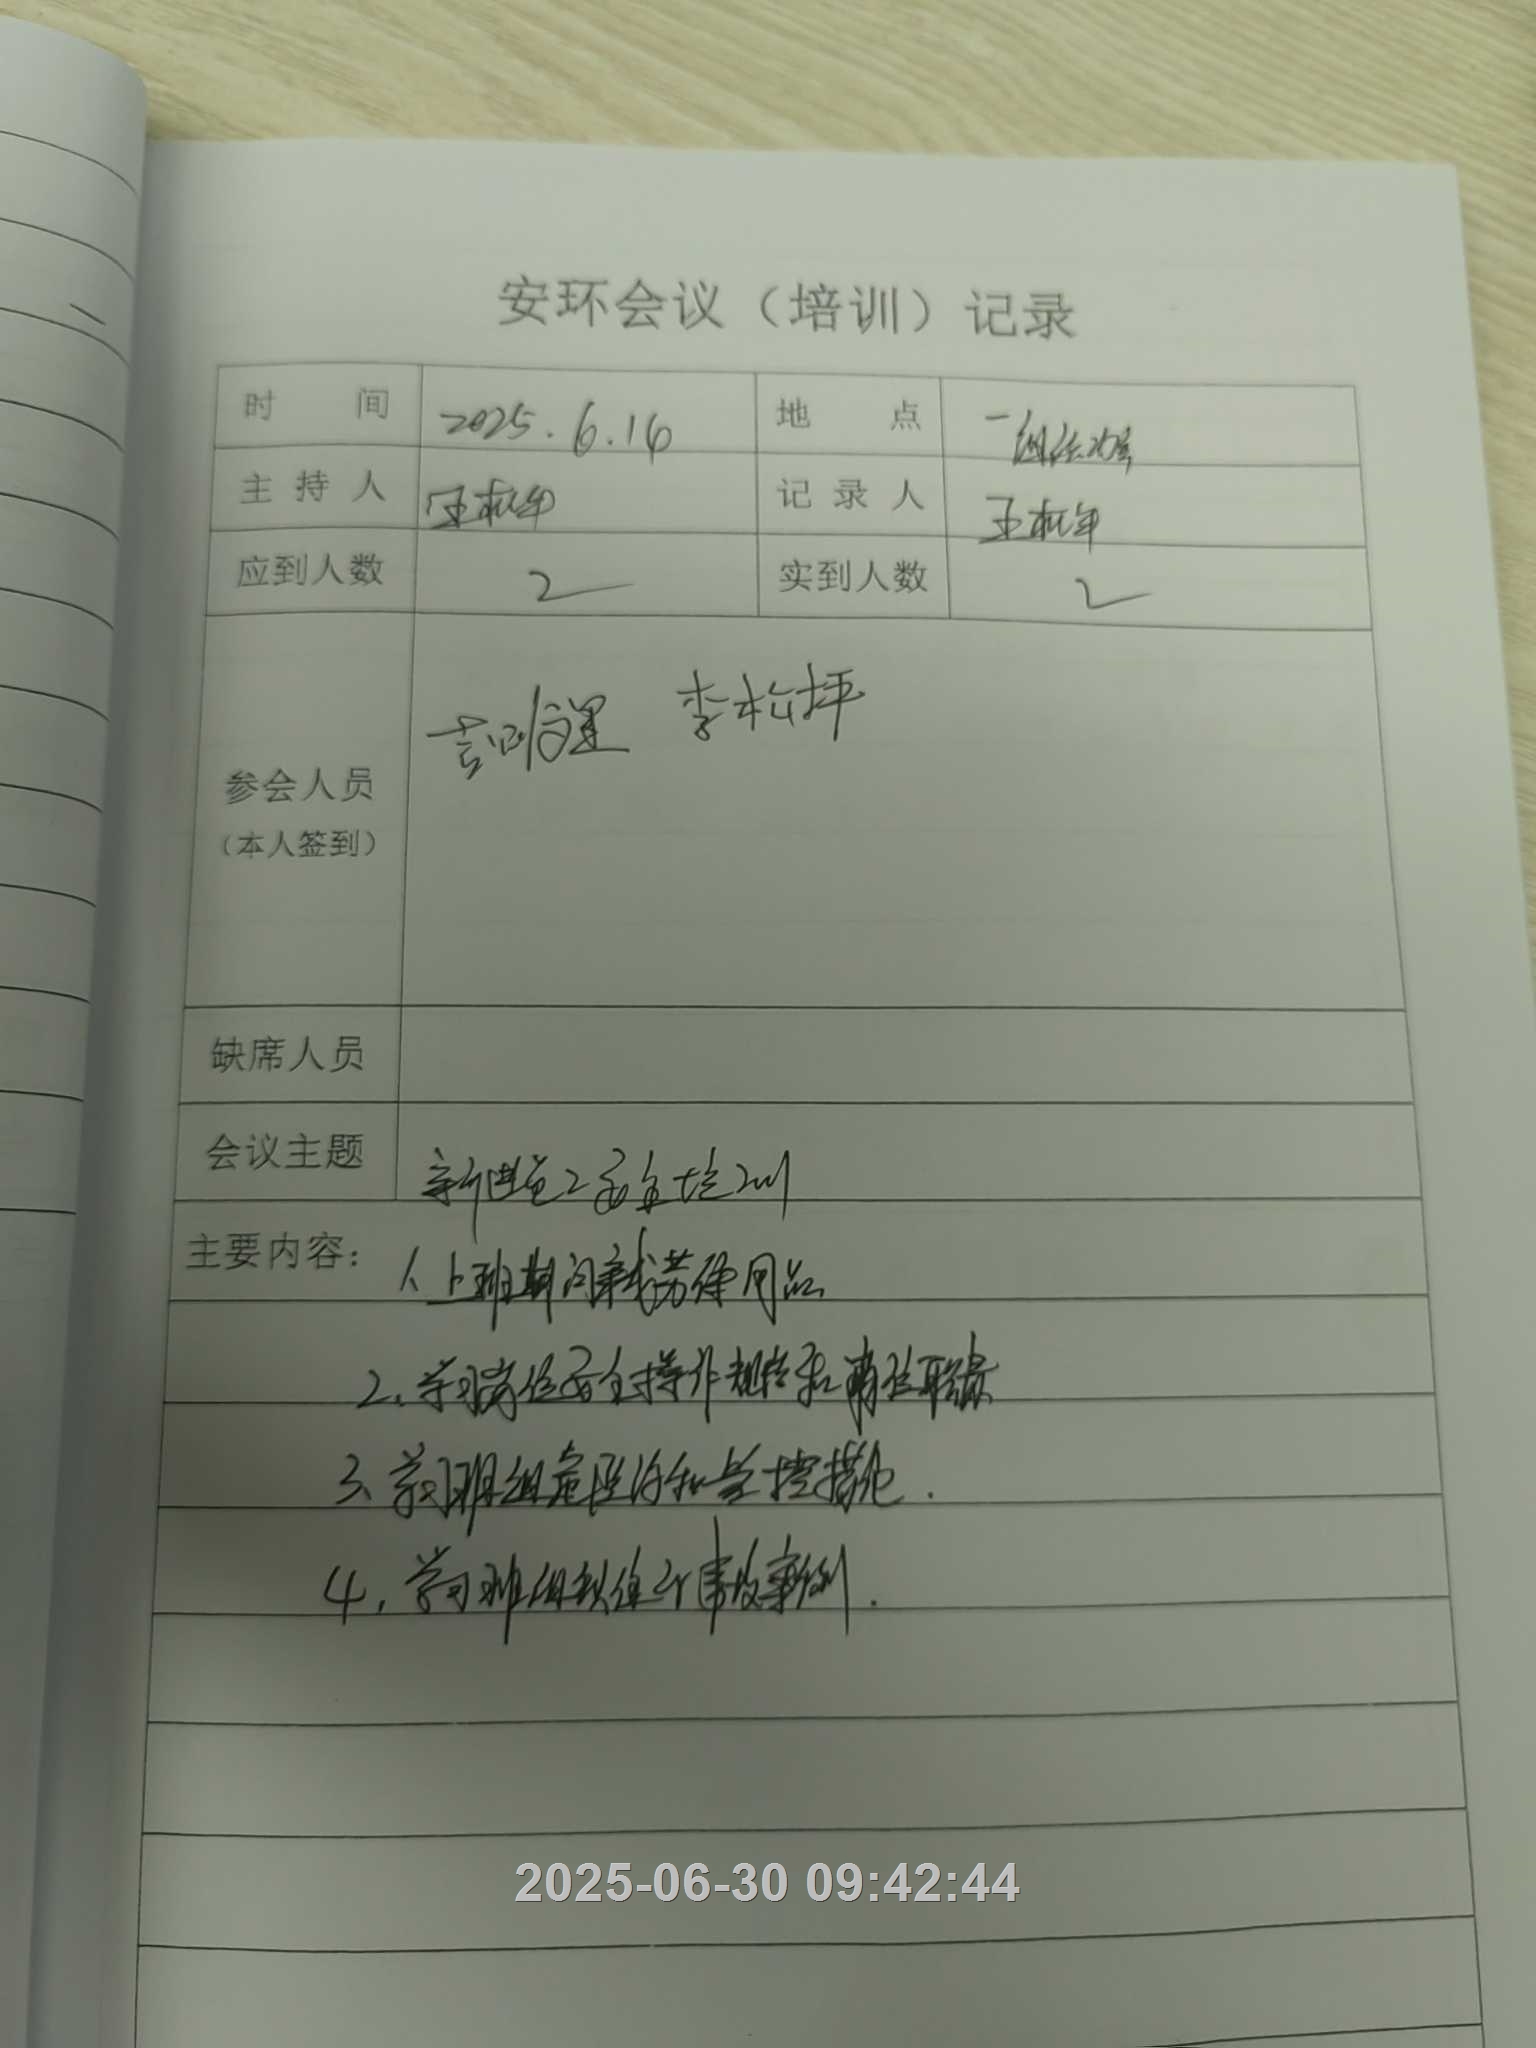 安环会议（培训）记录
时间 2025.6.16 地点 一组活动室
主持人 王松年 记录人 王松年
应到人数 2 实到人数 2
参会人员 李松坪
（本人签到）
缺席人员
会议主题 新进员工安全培训
主要内容： 1、上班期间穿戴劳保用品
2、学习岗位安全操作规程和岗位职责
3、学习班组危险源和管控措施.
4、学习班组事故案例.
2025-06-30 09:42:44